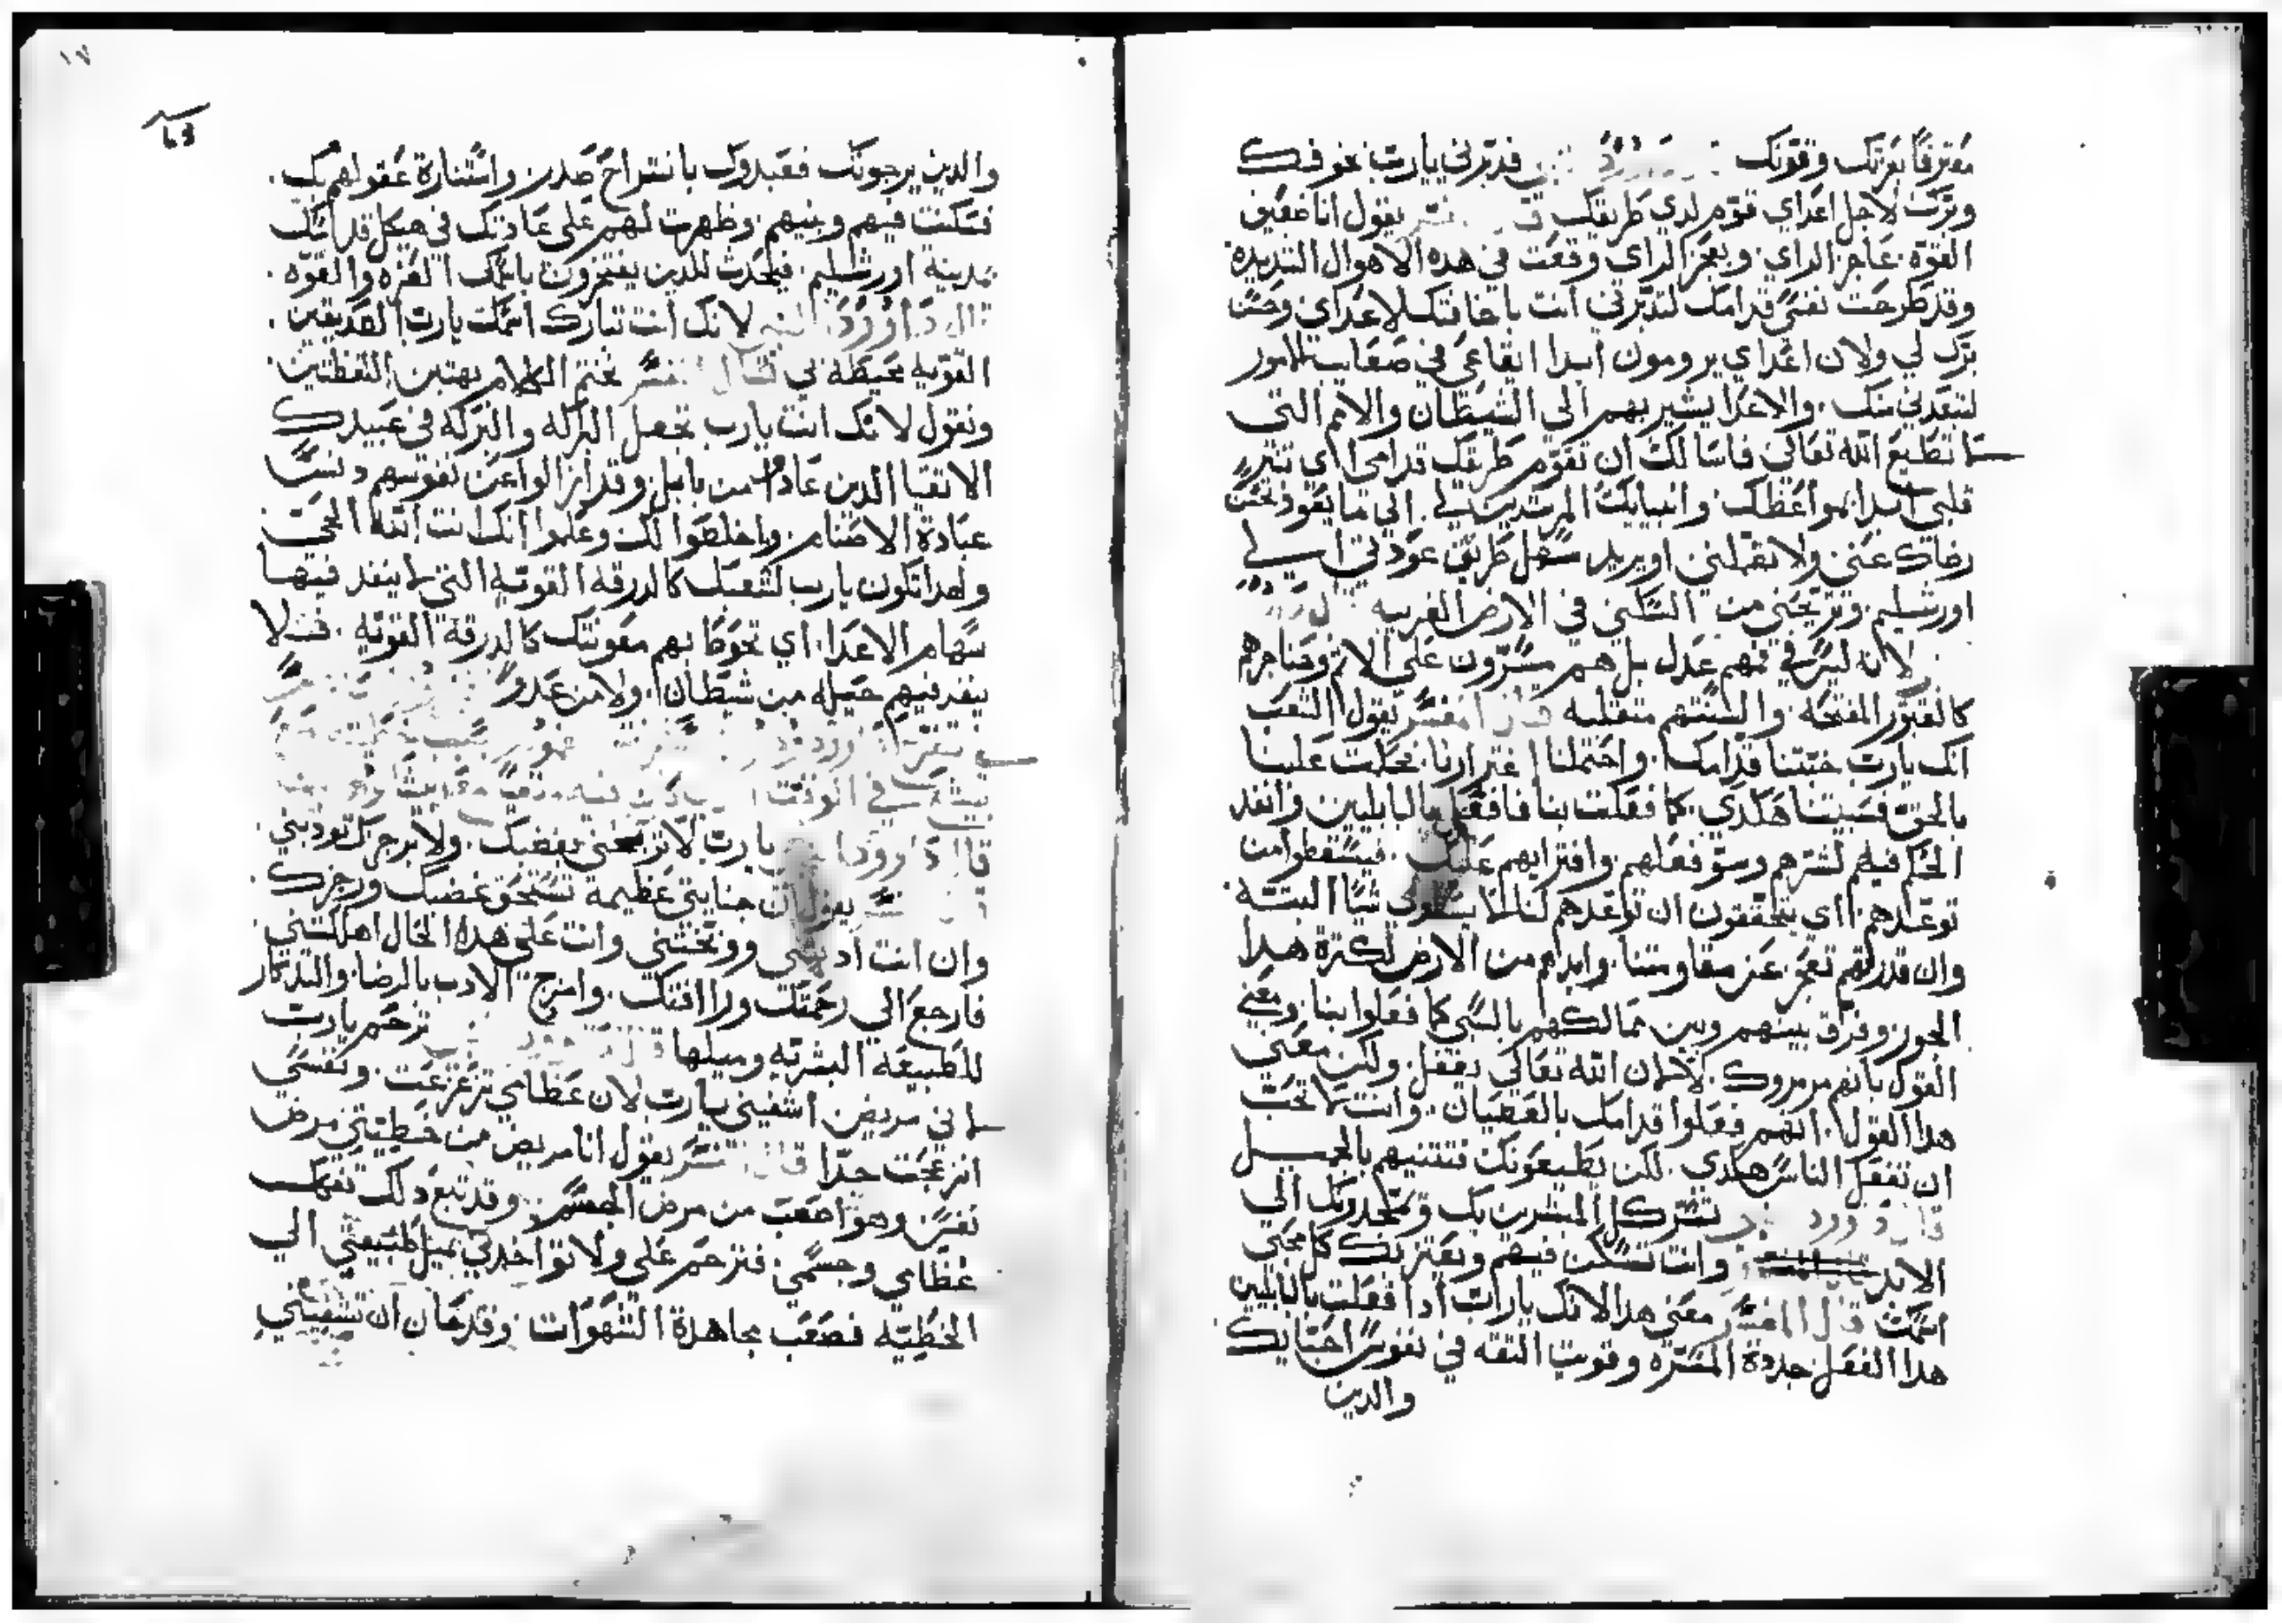 معترفًا بعزتك وقوتك فدبرني يارب نحوفك
وبرك لاجل اعداي قوم لدي طريقك يقول انا ضعيف
القوة عاجز الراي وبعجز الراي وقعت في هده الاهوال الشديده
وقد طرحت نفسي قدامك لتدبرني انت باخافتك لاعداي وحسن
برك لي ولان اعداي يرومون ابدا ايقاعي في صعايب الامور
لتبعدني منك والاعدا يشير بهم الي الشيطان والامم التي
لا تطيع الله تعالي فاسالك ان تقوم طريقك قدامي اي تنير
قلبي ابدا بمواعظك وانبيايك المرشدين لي الي ما يعود بحسن
رضاك عني ولا تهملني او يريد سهل طريق عودتي الي
اورشليم وتريحني من السكني في الارض الغريبه
لانه ليس في فمهم عدل بل هم مسرون علي الاثم وحناجرهم
كالقبور المفتحه والسنتهم منقلبه قال المفسر يقول الشعب
انك يارب خبتنا قدامك واحتملنا اغترارنا فحكمت علينا
بالحق فسبيتنا هكدي كما فعلت بنا فافعل بالبابليين وانفد
الحكم فيهم لشرهم وسو فعلهم وافترايهم عليك فيسقطوا من
توعدهم اي يتحققون ان تواعدهم لنا لا شيًا البتة
وان قدرتهم تعجز عن مقاومتنا وابدهم من الارض لكثرة هدا
الجور وفرق بينهم وبين ممالكهم بالسبي كما فعلوا بنا ومعني
القول بانهم مرمروك لا لان الله تعالي ينفعل ولكن معني
هدا القول انهم فعلوا قدامك بالعصيان وانت لا تحب
ان تفعل الناس هكدي لكن يطيعونك فتثنيهم بالجميل
قال داوود تسر كل المبشرين بك ويمجدونك الي
الابد وانت تسكن فيهم ويعتز بك كل محبي
اسمك قال المفسر معني هدا لانك يارب ادا فعلت بالبابليين
هدا الفعل جددة المسره وقويت الثقه في نفوس احبايك
والدين
١٧
والدين يرجونك فعبدوك بانشراح صدر واستنارة عقولهم بك
فسكنت فيهم وبينهم وظهرت لهم علي عادتك في هيكل قدسك
بمدينه اورشليم فيحدث للدين يعتزون باسمك العزه والقوه
قال داوود النبي لانك انت تبارك اسمك يارب الصديقين
القويه محيطه بي قال المفسر نختم الكلام بهتين اللفظتين
ونقول لانك انت يارب تجعل البركه والبركه في عبيدك
الاتقيا الدين عادوا من بابل وقد ازالوا عن نفوسهم دنس
عبادة الاصنام واخلصوا لك وعلموا انك انت الله الحق
ولهدا تكون يارب لشعبك كالدرقه القويه التي لا ينفد فيها
سهام الاعدا اي تحوطا بهم معونتك كالدرقة القويه فلا
ينفد فيهم حيله من شيطان ولا من عدو
في الوقت
قال داوود يارب لا تربكني بغضبك ولا برجزك تودبني
يقول ان جنايتي عظيمة تستحق غضبك ورجزك
وان انت ادبتني ووبختني وانت علي هدا الحال اهلكتني
فارجع الي رحمتك ورافتك وامزج الادب بالرضا والتدكار
للطبيعه البشريه وميلها ترحم يارب
لاني مريض اشفيني يارب لان عظامي تزعزعت ونفسي
انزعجت جدًا يقول انا مريض من خطيتي مرض
نفس وهو اصعب من مرض الجسم وقد تبع دلك تفكك
عظامي وجسمي فترحم علي ولا تواخدني بميل طبيعتي الي
الخطيه فصعب مجاهدة الشهوات وقد حان ان تشفيني